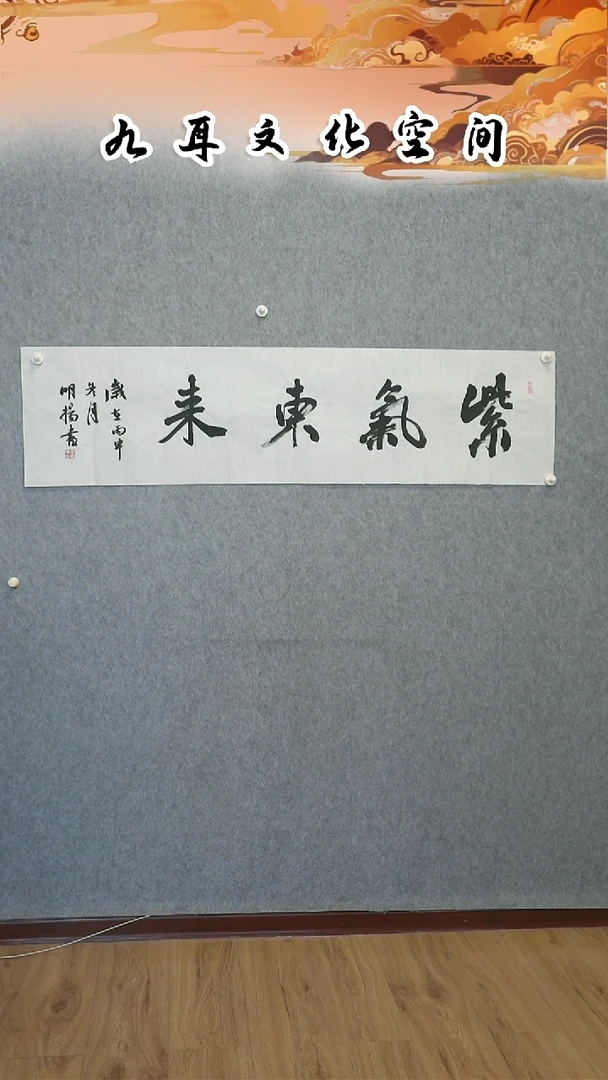 九耳文化空间
紫氣東来
歲在丙申
冬月
明揚書